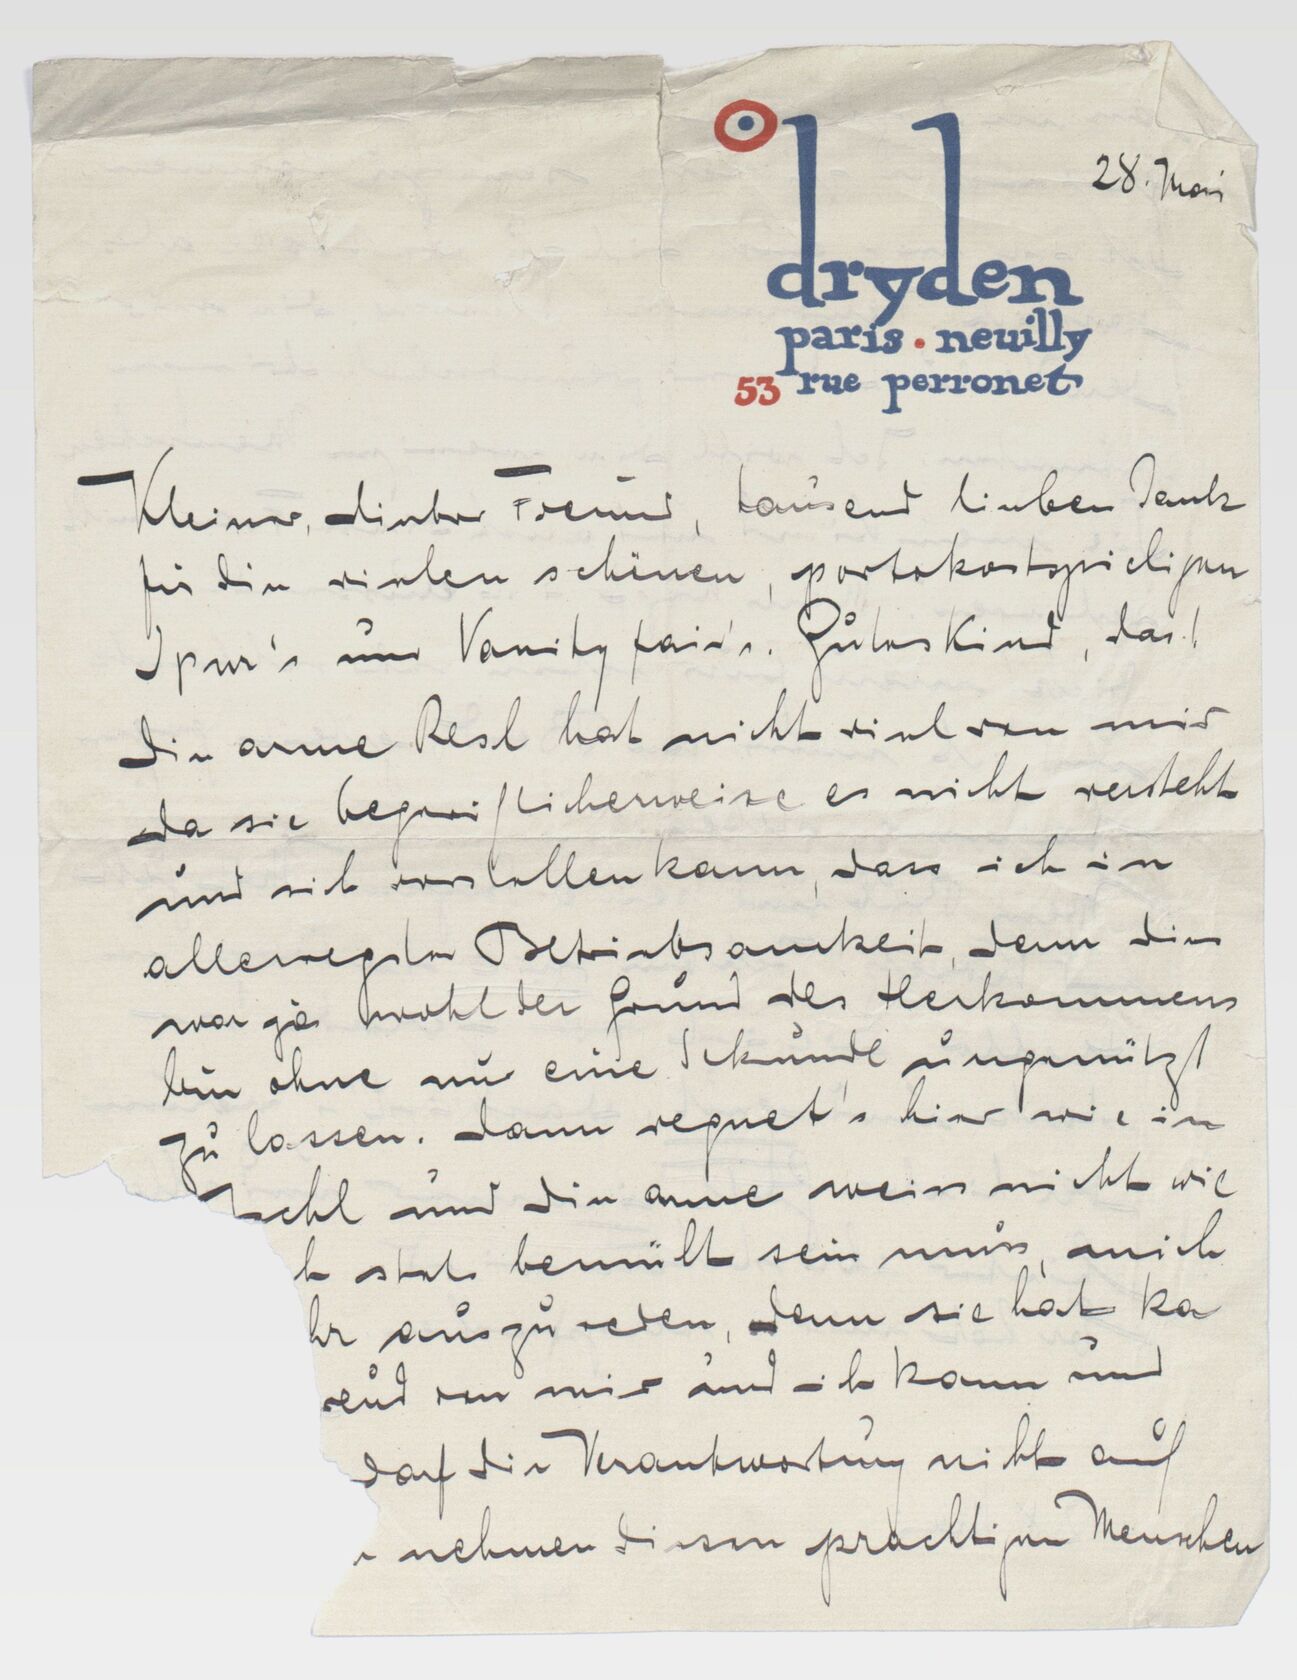 dryden
28. Mai
paris · neuilly
53 rue perronet
Kleiner, lieber Freund, tausend lieben Dank
für die vielen schönen, portokostspieligen
und Vanity fair's. Gutes Kind, das!
Die arme Resl hat nicht viel von mir
da sie begreiflicherweise es nicht versteht
und sich vorstellen kann, dass ich in
allerregster Betriebsamkeit, denn dies
war ja wohl der Grund des Herkommens
bin ohne nur eine Sekunde ungenützt
zu lassen. Dann regnet's hier wie in
Ischl und die arme weiss nicht wie
h stets bemüht sein muss, mich
hr auszureden, denn sie hat ka
reud von mir und ich kann und
darf die Verantwortung nicht auf
nehmen diesen prächtigen Menschen